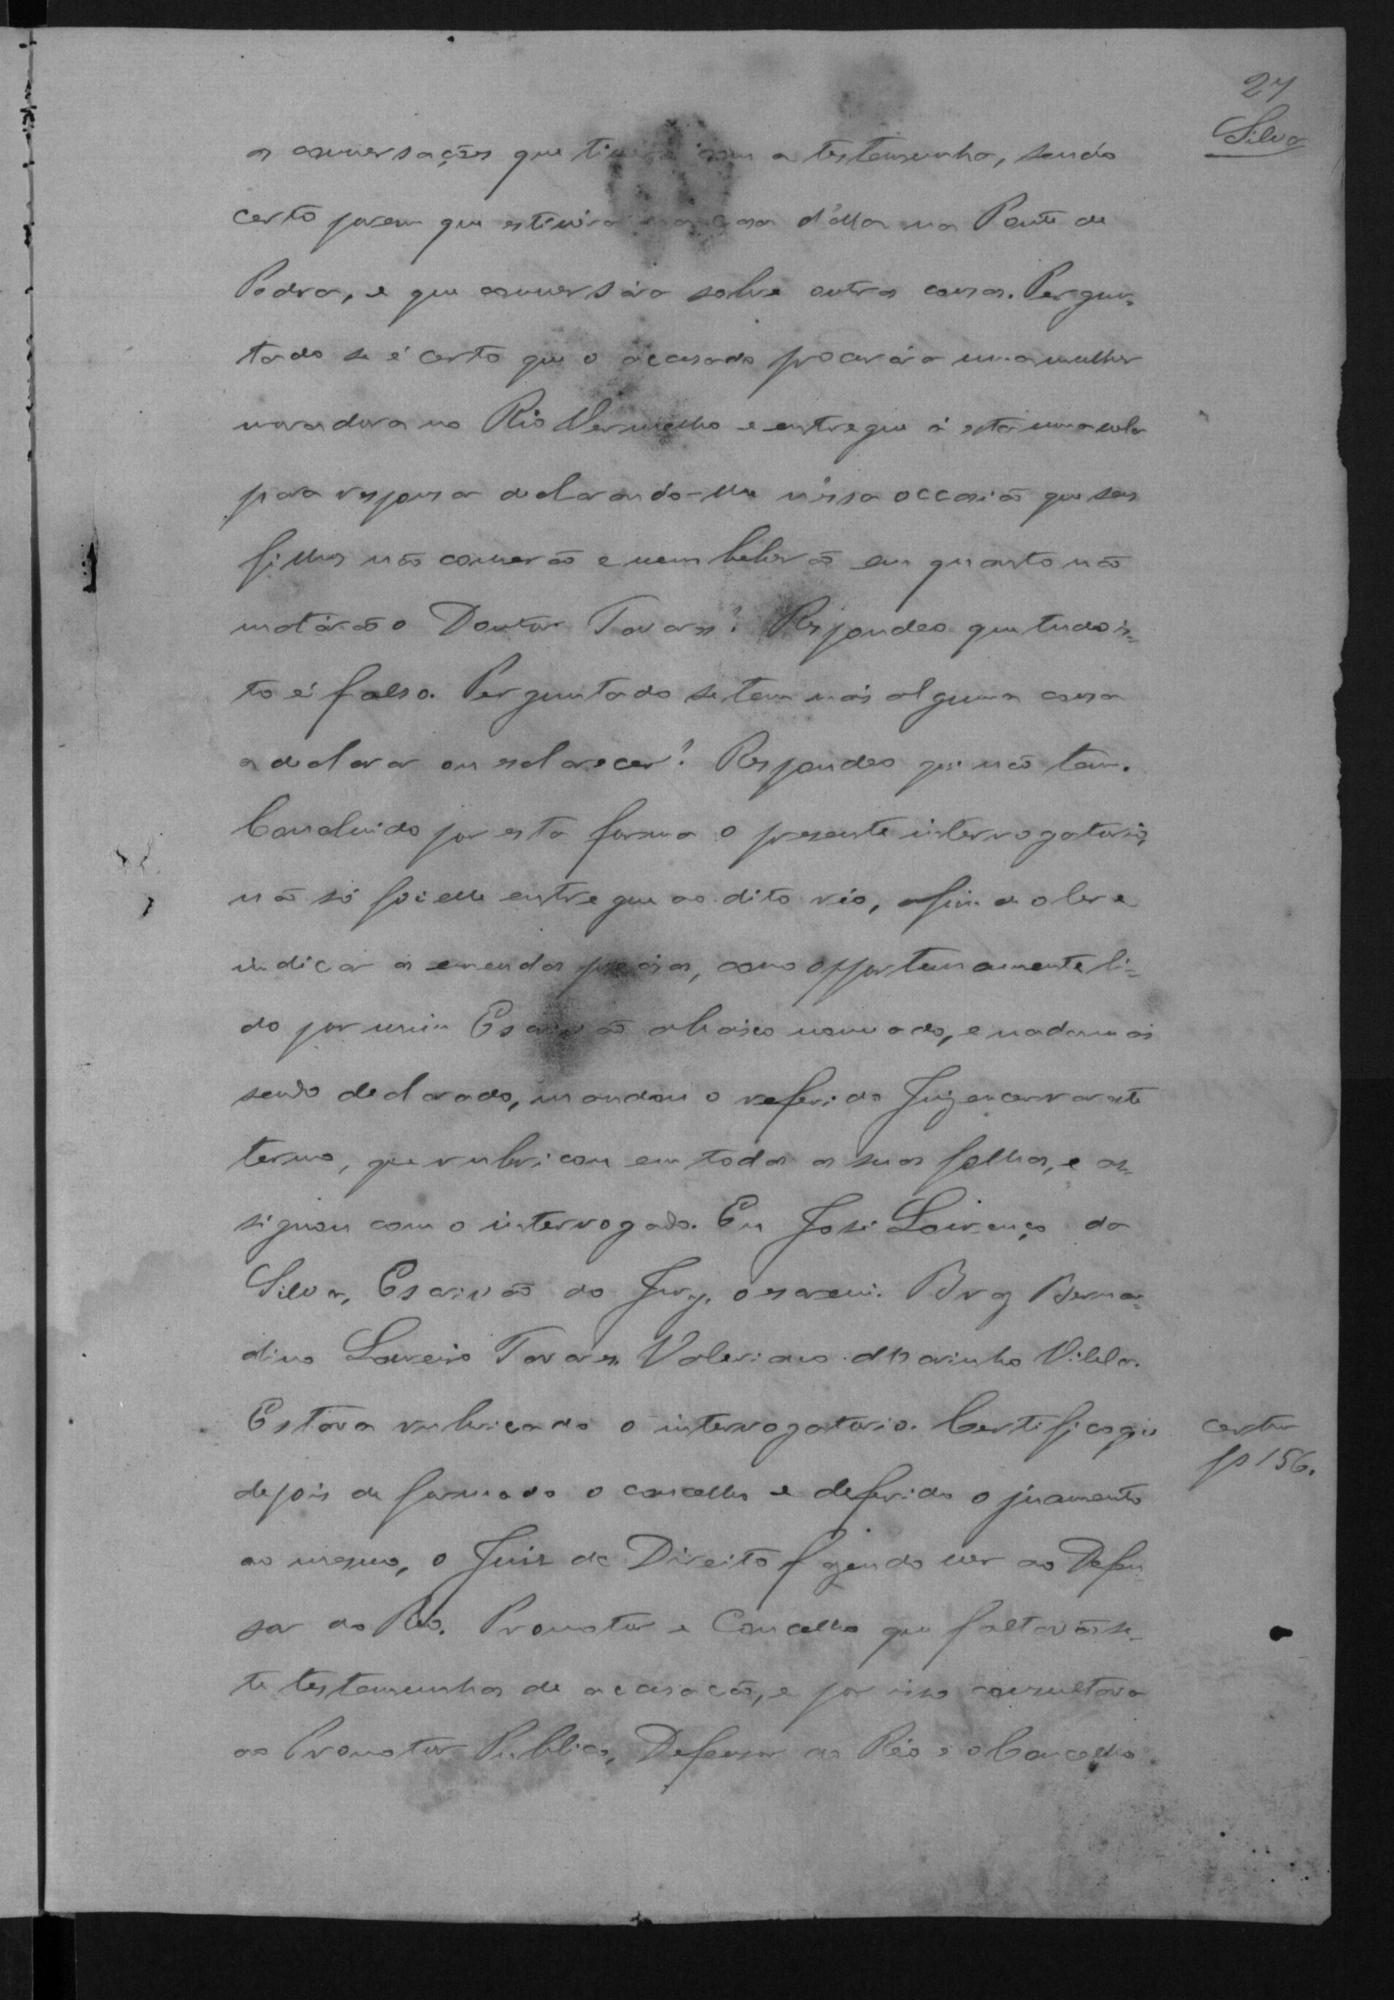 27
Silva
as conversações que tivera com a testemunha, sendo
certo porem que estivera na casa d'ella na Ponte de
Pedra, e que conversára sobre outras cousas. Pergun-
tado se é certo que o accusado procurára uma mulher
moradora no Rio Vermelho e entregue á esta uma
para declarando-lhe n'essa occasião que seus
filhos não comerão e nem beberão em quanto não
matárão o Doutor Tavares? Respondeo que tudo is-
to é falso. Perguntado se tem mais alguma cousa
a declarar ou esclarecer? Respondeo que não tem.
Concluido por esta forma o presente interrogatorio,
não só foi elle entregue ao dito réo, afim de o ler e
indicar as emendas precisas, como opportunamente li-
do por mim Escrivão abaixo nomeado, e nada mais
sendo declarado, mandou o referido Juiz encerrar este
termo, que rubricou em todas as suas folhas, e as-
signou com o interrogado. Eu José Lourenço da
Silva, Escrivão do Jury, o escrevi. Braz Berna-
dino Loureiro Tavares. Valeriano Marinho Vilela.
Estava rubricado o interrogatorio. Certifico que
depois de formado o concelho e deferido o juramento
ao mesmo, o Juiz de Direito fazendo ver ao Defen-
sor do Réo, Promotor e Concelho que faltavão se-
te testemunhas de accusação, e por isso consultava
ao Promotor Publico, Defensor do Réo e o Concelho
fs 156.